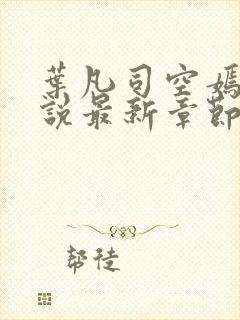 葉凡司空嫣
說最新章節
幇徒